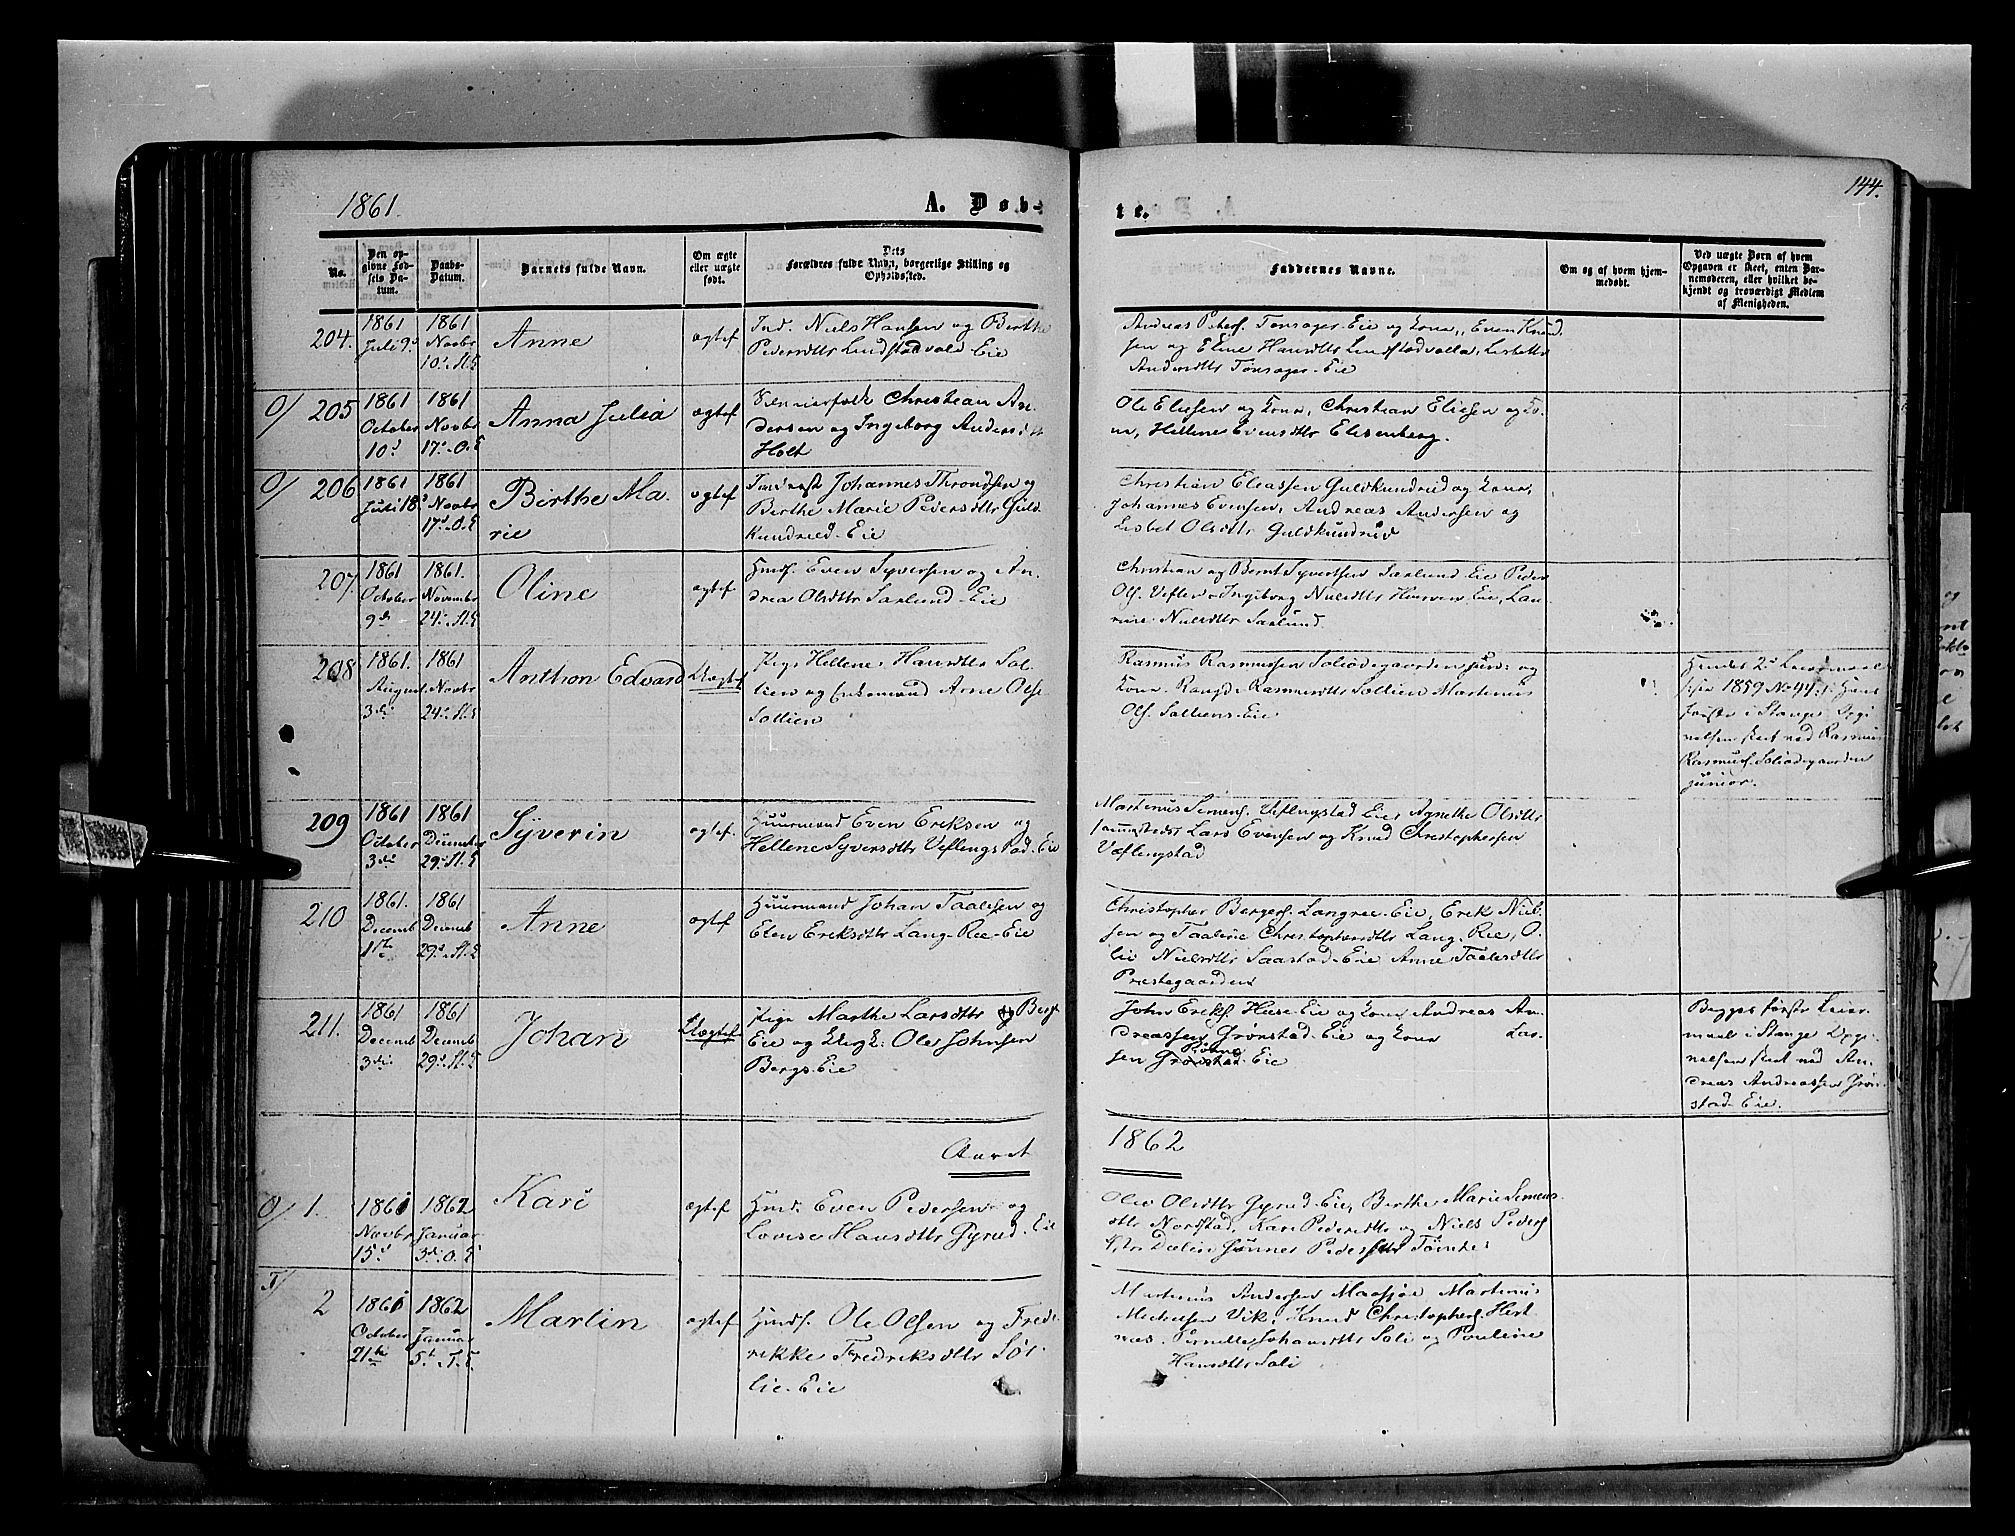 1861.
A. Døb-
te.
144.
No.
Den op-
givne Fød-
sels Da-
tum.
Daabs-
Datum.
Barnets fulde Navn.
Om ægte
eller uægte
født.
Dets
Forældres fulde Navn, borgerlige Stilling og
Opholdssted.
Faddernes Navne.
Om og af hvem hjem-
medøbt.
Ved uægte Børn af hvem
Opgaven er skeet, enten Bar-
nemoderen, eller hvilket be-
kjendt og troværdigt Medlem
af Menigheden.
204.
1861
Juli 9d
1861
Novbr
10d St. K
Anne
ægtef
Ind. Niels Hansen og Berthe
Pedersdttr Lindstadvold Eie
Andreas Peters. Tønsager Eie og Kone, Even Knud
sen og Eline Hansdttr Lindstadvolla, Lisbeth
Andersdttr Tønsager-Eie
O/ 205
1861
October
10d
1861
Novbr
17d O. K
Anna Julia
ægtef
Christian An-
dersen og Ingeborg Andersdttr
Holt
Ole Eliesen og Kone, Christian Eliesen og Ko-
ne, Hellene Evensdttr Elisenberg.
O/ 206
1861
Juli 18d
1861
Novbr
17d O. K
Birthe Ma-
rie
ægtef
Inderst Johannes Throndsen og
Berthe Marie Pedersdttr Guld-
kundrud-Eie
Christian Eleassen Guldkundrud og Kone,
Johannes Evensen, Andreas Andersen og
Lisbet Olsdttr Guldkundrud
207.
1861
October
9de
1861.
November
24d St. K
Oline
ægtef
Huusm. Even Syversen og An-
drea Olsdttr Saxlund-Eie
Christian og Bernt Syvertsen Saxlund Eie Peder
Ols. Ingeborg Nielsdttr Eie, Lau-
rine Nielsdttr Saxlund.
208
1861.
August
3die
1861
Novbr
24d St. K
Anthon Edvard
Uægtef
Pige Hellene Hansdttr Sol-
lien og Enkemand Arne Olse
Sollien
Rasmus Rasmussen Soliødegaarden jun: og
Kone Rangdi Rasmusdttr Sollien Martinus
Ols. Solliens-Eie
Hendes 2d Leiermaal
1859 No 44. Hans
første i Stange. Opgi-
velsen skeet ved Rasmus
Rasmus. Soliødegaarden
junior.
209
1861
October
3die
1861
December
29d St. K
Syverin
ægtef.
Huusmand Even Eriksen og
Hellene Syversdttr Veflingstad-Eie
Martinus Simens. Veflingstad Eie, Agnethe Olsdttr
sammesteds Lars Evensen og Knud Christophersen
Veflingstad
210
1861.
Decemb
1ste
1861
Decemb
29d St. K
Anne
ægtef
Huusmand Johan Taalesen og
Elen Eriksdttr Lang-Ree-Eie
Christopher Bergers. Langree-Eie, Erik Niel-
sen og Taaline Christophersdttr Lang-Ree, O-
liv Nielsdttr Saastad-Eie Anne Taalesdttr
Prestegaarden
211.
1861
Decemb
3die
1861
Decemb
29d St. K
Johan
Uægtef
Pige Marthe Larsdttr Berg
Eie og Ungk: Ole Johnsen
Bergs-Eie
John Eriks. Huse-Eie og Kone Andreas An-
dreassen Grønstad-Eie og Kone Lar-
sen Grønstad-Eie
Begges første Leier-
maal i Stange Opgi-
velsen skeet ved An-
dreas Andreassen Grøn-
stad-Eie.
Aaret
1862
O/ 1.
1861
Novbr
15d
1862
Januar
3d O. K
Kari
ægtef
Huusm. Even Pedersen og
Lovise Hansdttr Gyrud-Eie
Oliv Olsdttr Gyrud-Eie, Berthe Marie Simens-
dttr Nordstad, Kari Pedersdttr og Niels Peders.
Pedersdttr Tomter
T/ 2
1861
October
21de
1862
Januar
5t T. K
Martin
ægtef
Huusm. Ole Olsen og Fred-
rikke Fredriksdttr Sør-
lie-Eie
Martinus Andersen Maasjøe Martinus
Michelsen Vik, Knud Christophers. Hest-
næs. Pernelle Johansdttr Soli og Pauline
Hansdttr Soli